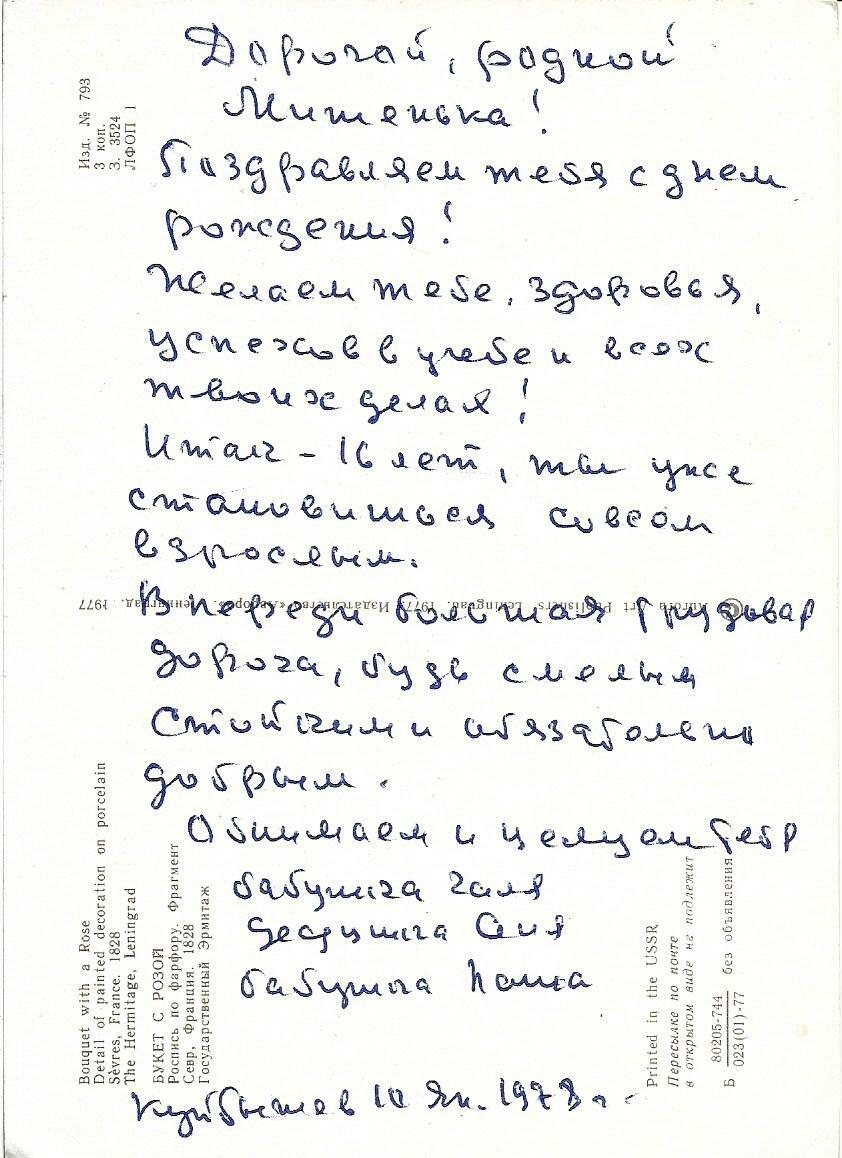 Дорогой, родной
Мишенька!
Поздравляем тебя с днем
рождения!
Желаем тебе, здоровья,
успехов в учебе и всех
твоих делах!
Итак – 16 лет, ты уже
становишься совсем
взрослым.
Впереди большая трудовая
дорога, будь смелым
стойким и обязательно
добрым.
Обнимаем и целуем тебя
бабушка Галя
дедушка
бабушка
Куйбышев 10 Ян. 1978 г.
Изд. № 793
3 коп.
З. 3524
ЛФОП 1
Aurora Art Publishers. Leningrad. 1977. Издательство «Аврора». Ленинград. 1977
Bouquet with a Rose
Detail of painted decoration on porcelain
Sèvres, France. 1828
The Hermitage, Leningrad
БУКЕТ С РОЗОЙ
Роспись по фарфору. Фрагмент
Севр, Франция. 1828
Государственный Эрмитаж
Printed in the USSR
Пересылке по почте
в открытом виде не подлежит
Б 80205-744
023(01)-77 без объявления